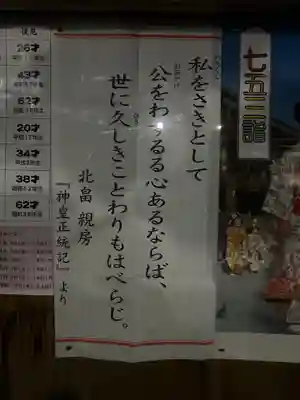 七五三詣
私をさきとして
公をわするる心あるならば、
世に久しきことわりもはべらじ。
北畠 親房
『神皇正統記』より
後見
26才
43才
62才
20才
34才
38才
62才